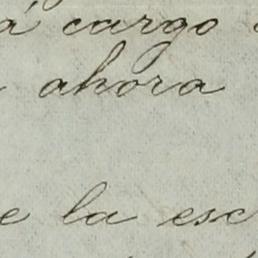 á cargo
ahora
e la esc